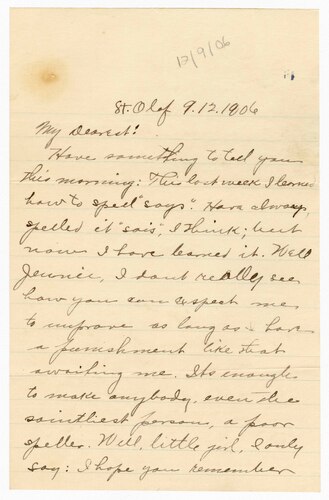 12/9/06
St. Olaf 9.12.1906
My Dearest!
Have something to tell you
this morning: This last week I learned
how to spell "says". Have always
spelled it "sais", I think; but
now I have learned it. Well
Jennie, I don't really see
how you can expect me
to improve as long as I have
a punishment like that
awaiting me. Its enough
to make anybody, even the
saintliest person, a poor
speller. Well, little girl, I only
say: I hope you remember